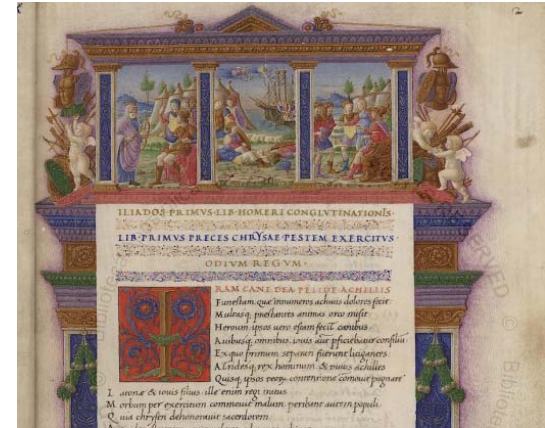 2
ILIADOS·PRIMVS·LIB·HOMERI CONGLVTINATIONIS·
LIB·PRIMVS PRECES CHRYSAE PESTEM EXERCITVS
ODIVM REGVM·
IRAM CANE DEA PELIDE ACHILLIS
Funestam que innumeros achiuis dolores fecit
Multasq, prestantis animas orco misit
Heroum ipsos uero esam fecit canibus
Auibusq, omnibus iouis aut pficiebatur consiliu
Ex quo primum separati fuerunt litigantes
Atridesq, rex hominum & diuus achilles
Quisq, ipsos deorum contentione comouit pugnare
Latonae & iouis filius ille enim regi iratus
Morbum per exercitum commouit malum peribant autem populi
Quia chrysen dehonorauit sacerdotem